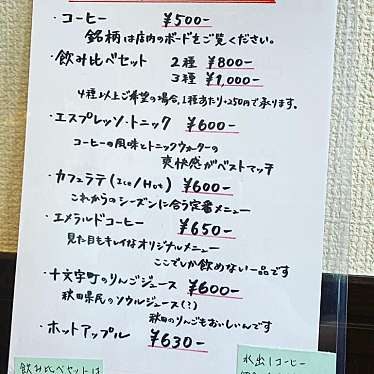 ・コーヒー ¥500-
銘柄は店内のボードをご覧ください。
・飲み比べセット 2種 ¥800-
3種 ¥1,000-
4種以上ご希望の場合、1種あたり+250円で承ります。
・エスプレッソ・トニック ¥600-
コーヒーの風味とトニックウォーターの
爽快感がベストマッチ
・カフェラテ(Ice/Hot) ¥600-
これからのシーズンに合う定番メニュー
・エメラルドコーヒー ¥650-
見た目もキレイなオリジナルメニュー
ここでしか飲めない一品です
・十文字町のりんごジュース ¥600-
秋田県民のソウルジュース(?)
秋田のりんごもおいしいんです
・ホットアップル ¥630-
飲み比べセットは
水出しコーヒー